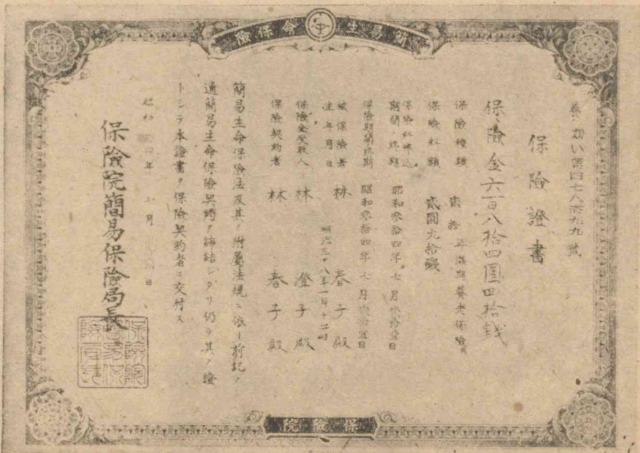 簡易生命保險
保險證書
保險金六百八拾四圓四拾錢
保險種類 貳拾年滿期養老保險
保險料額 貳圓九拾錢
保險料拂込期間ノ終期 昭和參拾四年七月
保險期間ノ終期 昭和參拾四年七月
被保險者 林 春子殿
生年月日
保險金受取人 林 澄子殿
保險契約者 林 春子殿
簡易生命保險法及其ノ附屬法規ニ依リ前記ノ
通簡易生命保險契約ヲ締結シタリ仍テ其ノ證
トシテ本證書ヲ保險契約者ニ交付ス
昭和 年 七月 日
保險院簡易保險局長
保險院